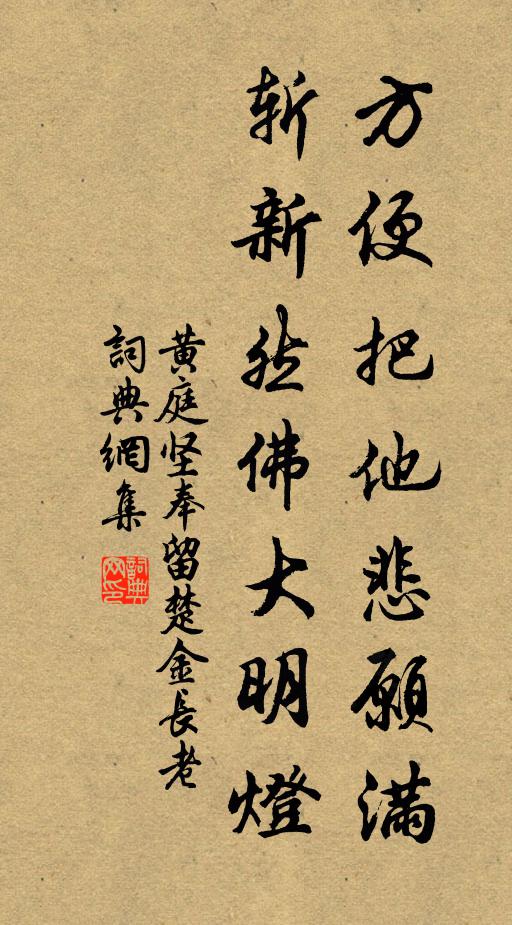 方便把他悲愿滿
斬新然佛大明燈
黃庭坚奉留楚金長老
詞典網集
詞典網印